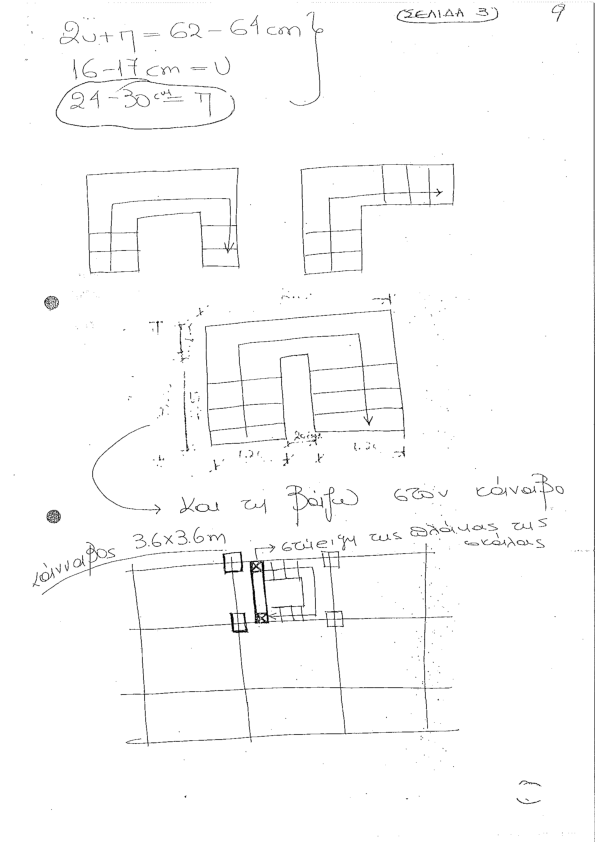 (ΣΕΛΙΔΑ 3) 9
2υ+π = 62-64cm
16-17cm = υ
24-30cm = π
1.20
1.20
→ Και τη βάζω στον κάνναβο
κάνναβος 3.6x3.6m
→ στήριξη της πλάκας της
σκάλας